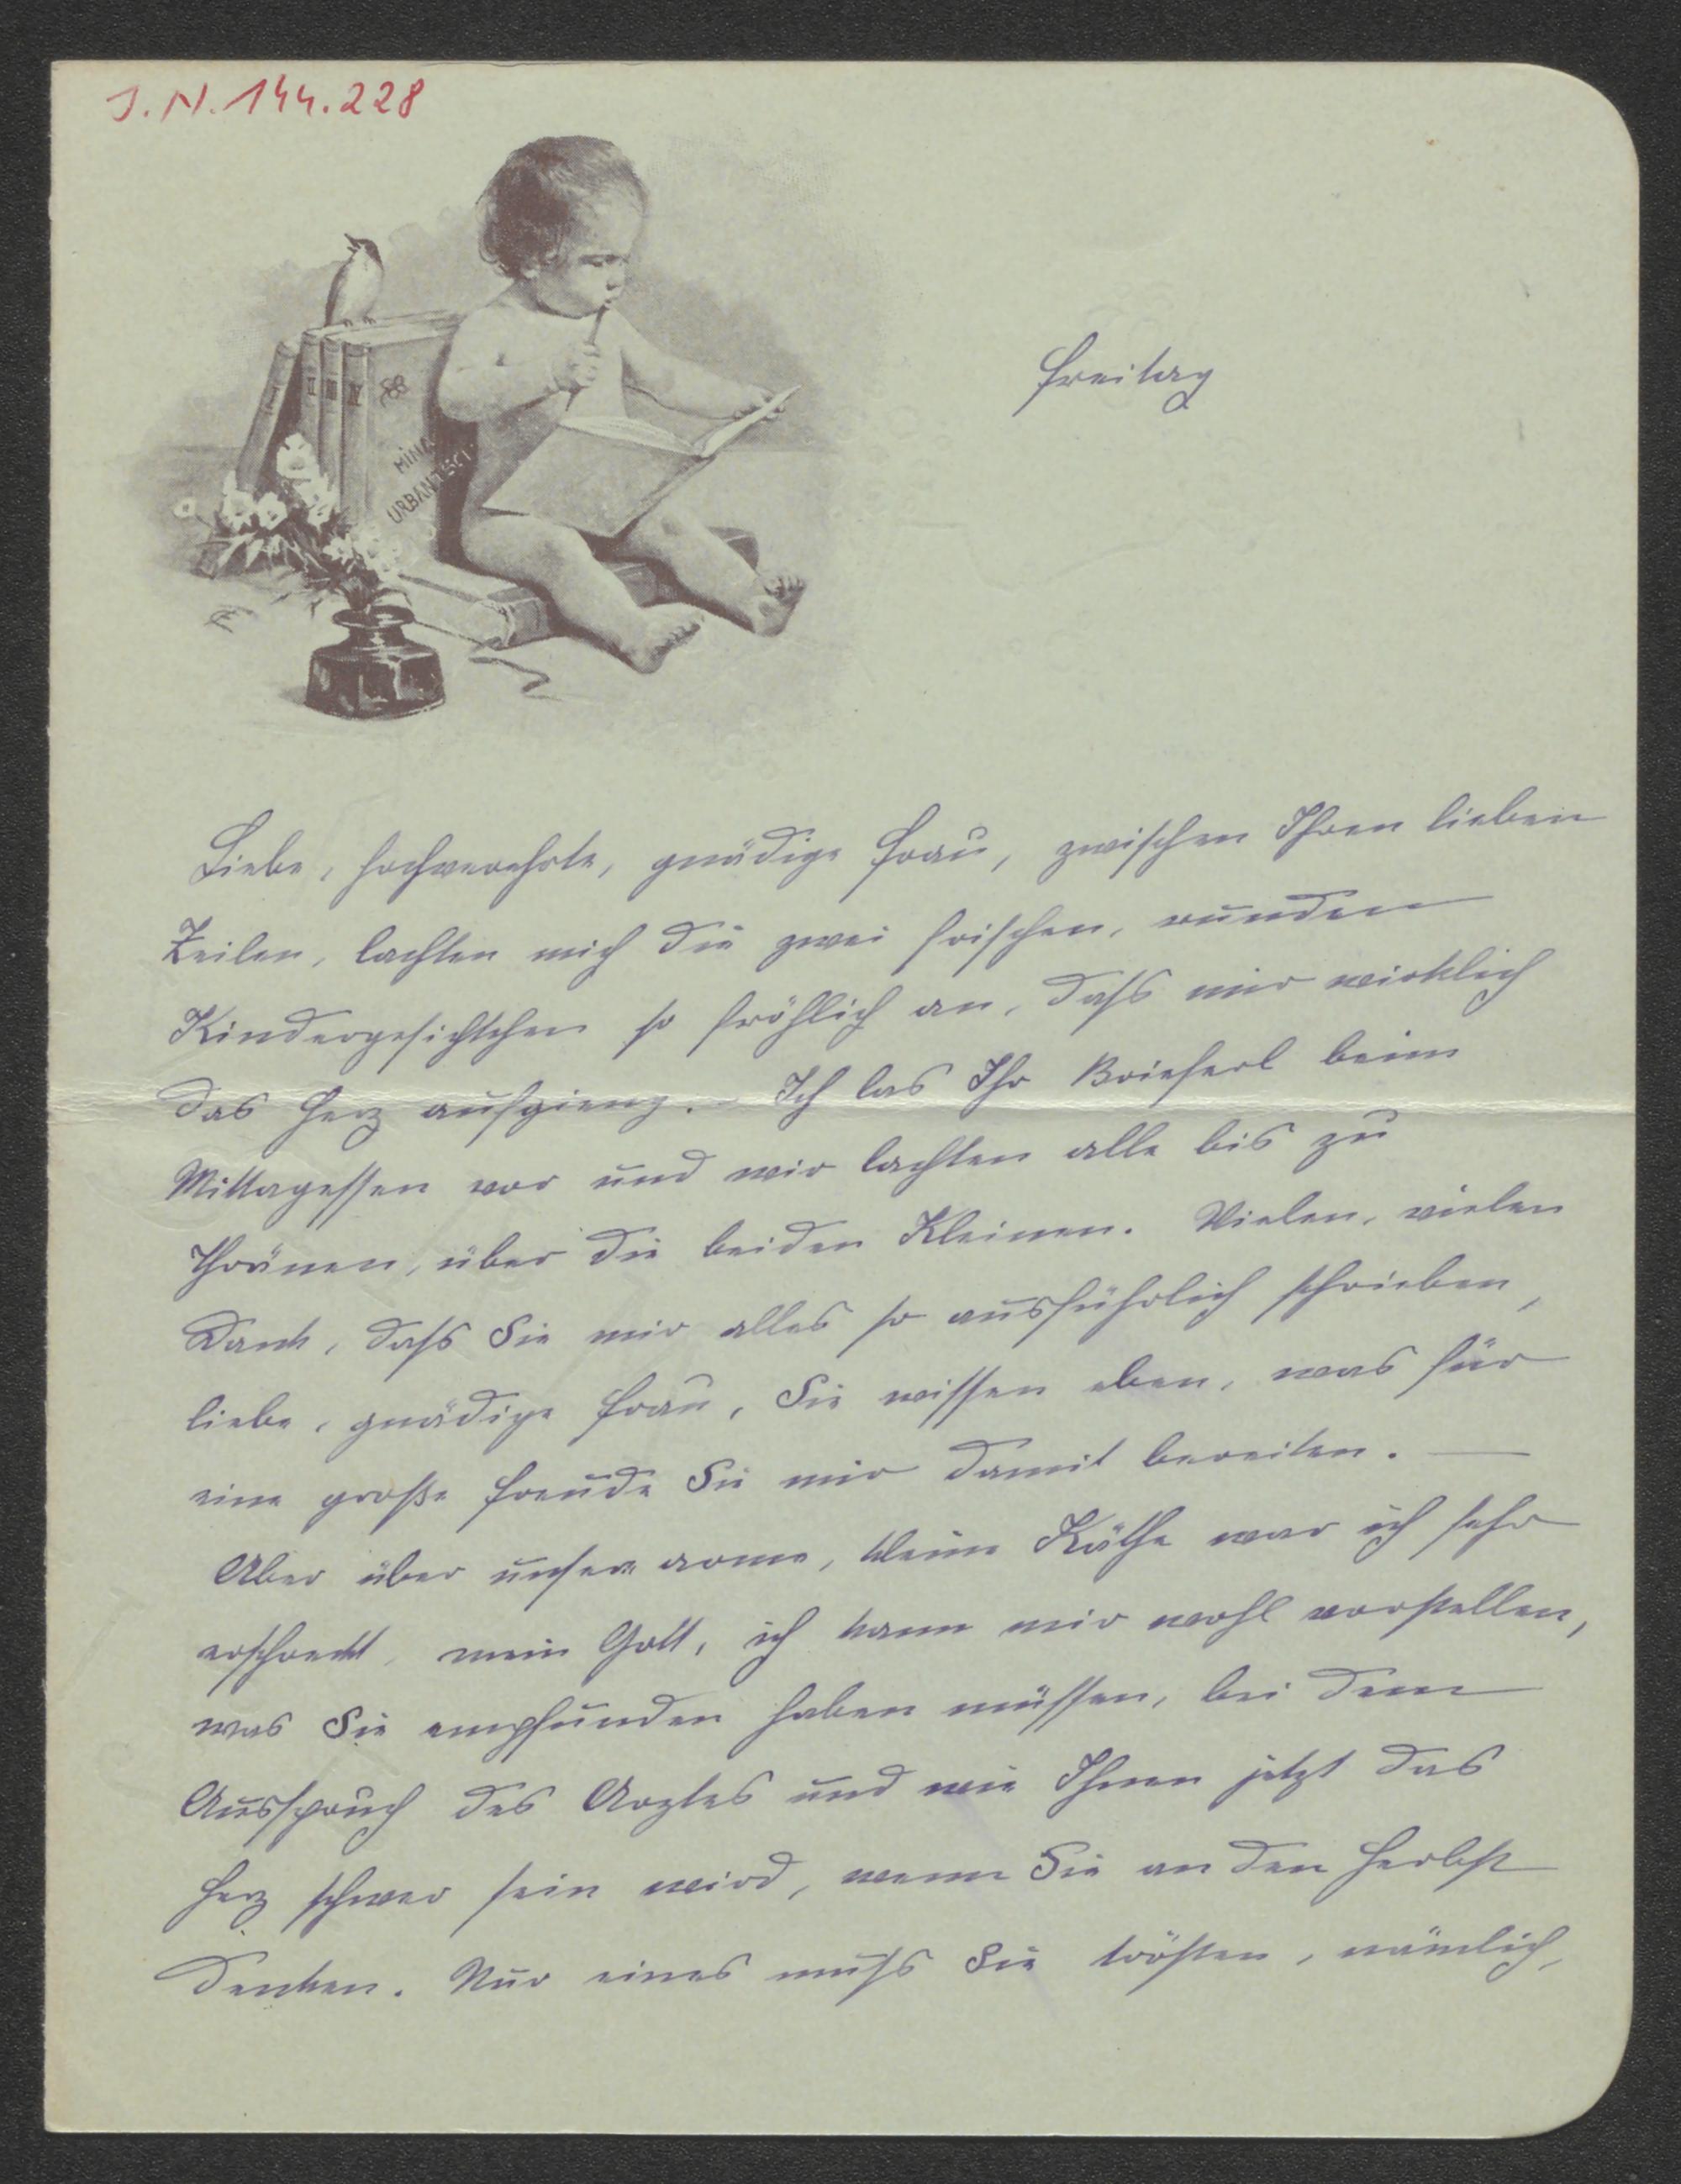 J.N. 144.228
II III IV
MINA
URBANTSCH
Freitag
Liebe, hochverehrte, gnädige Frau, zwischen Ihren lieben
Zeilen, lachten mich die zwei frischen, runden
Kindergesichtchen so fröhlich an, dass mir wirklich
das Herz aufgieng. – Ich las Ihr Brieferl beim
Mittagessen vor und wir lachten alle bis zu
Thränen, über die beiden Kleinen. Vielen, vielen
Dank, dass Sie mir alles so ausführlich schrieben,
liebe, gnädige Frau, Sie wissen eben, was für
eine große Freude Sie mir damit bereiten. —
Aber über unsere arme, kleine Käthe war ich sehr
erschreckt, mein Gott, ich kann mir wohl vorstellen,
was Sie empfunden haben müssen, bei dem
Ausspruch des Arztes und wie Ihnen jetzt das
Herz schwer sein wird, wenn Sie an den Herbst
denken. Nur eines muss Sie trösten, nämlich,